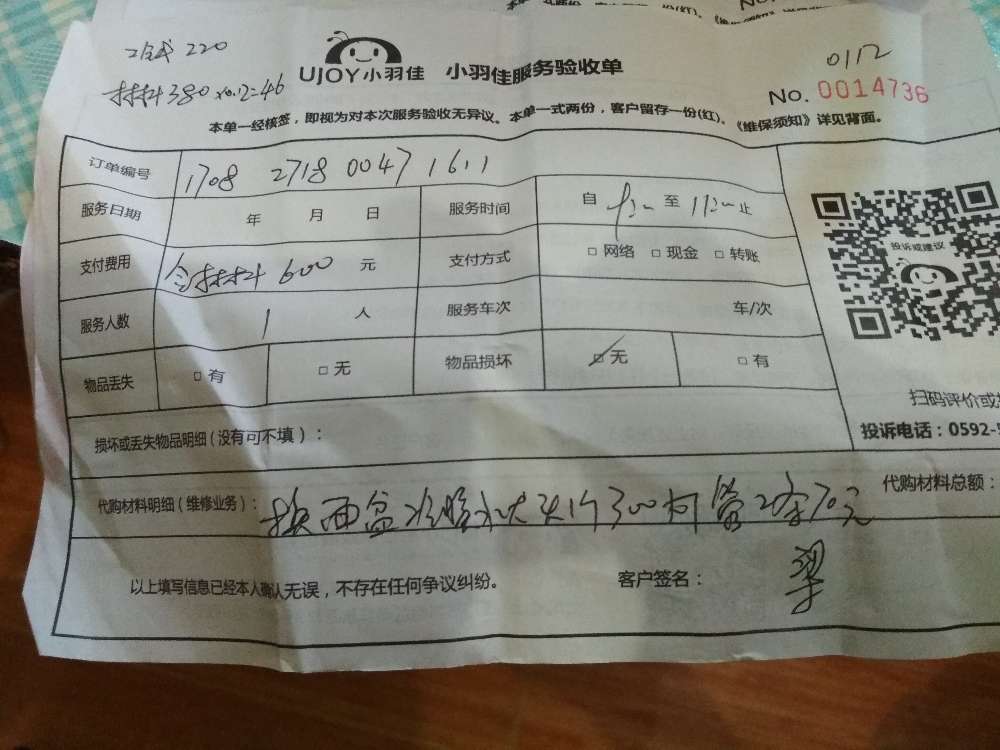 工钱 220
材料380 x0.12=46
UJOY小羽佳 小羽佳服务验收单
0112
No. 0014736
本单一经核签，即视为对本次服务验收无异议。本单一式两份，客户留存一份(红)。《维保须知》详见背面。
订单编号 1708 2718 0047 1611
服务日期 年 月 日 服务时间 自 至 止
支付费用 含材料 600 元 支付方式 □ 网络 □ 现金 □ 转账
服务人数 1 人 服务车次 车/次
物品丢失 □ 有 □ 无 物品损坏 □ 无 □ 有
投诉或建议
扫码评价或
投诉电话：0592-5
损坏或丢失物品明细（没有可不填）：
代购材料明细（维修业务）： 换 面盆 300 70元
代购材料总额：
以上填写信息已经本人确认无误，不存在任何争议纠纷。 客户签名：